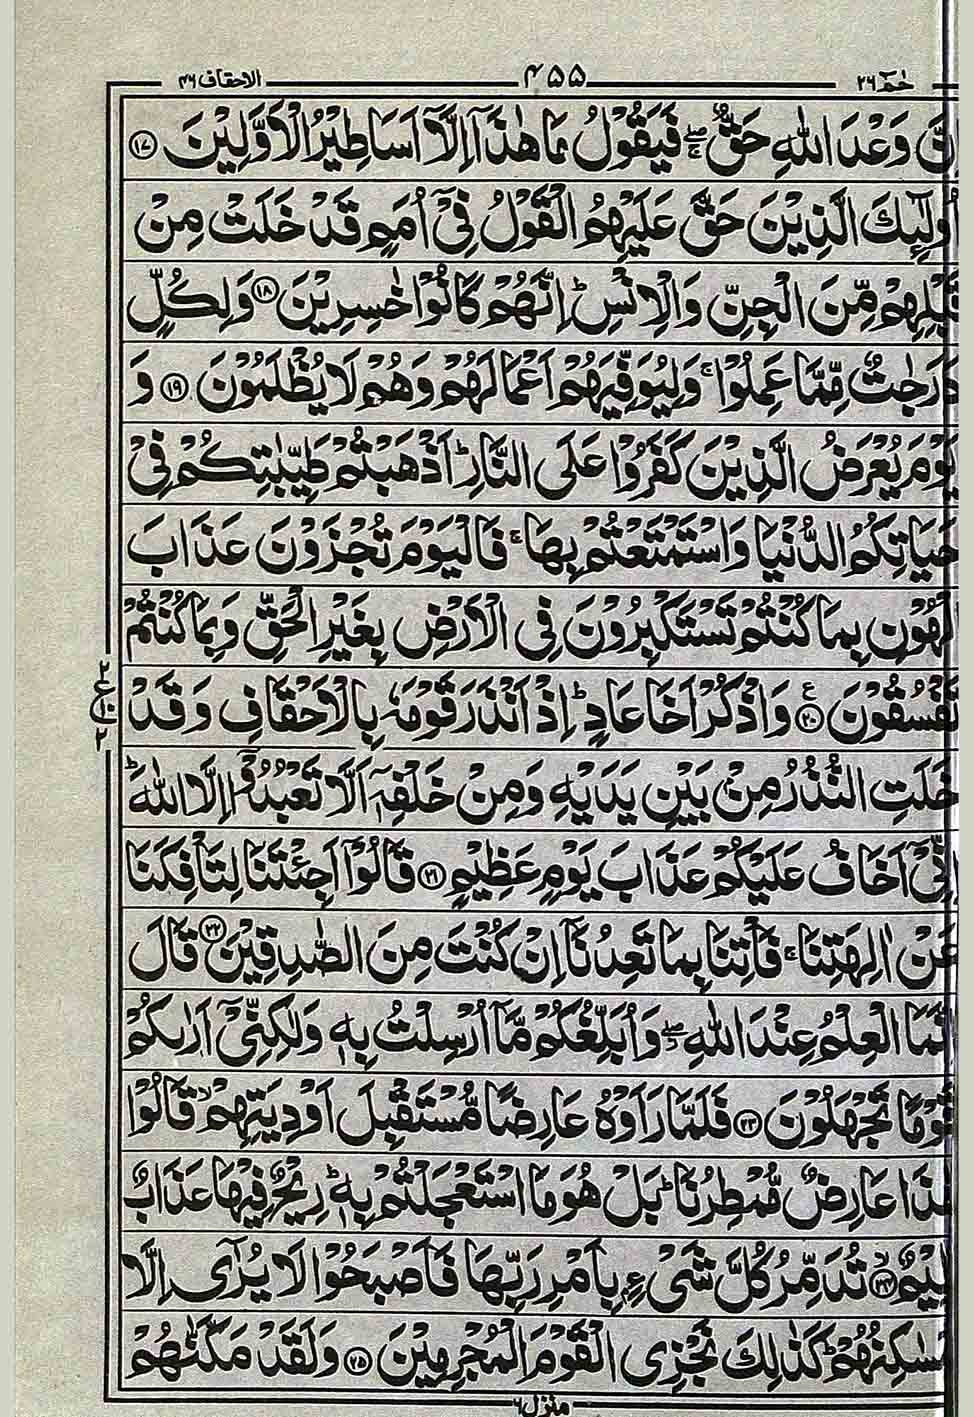 حٰمٓ ٢٦ ۴۵۵ الاحقاف ۴۶
اِنَّ وَعْدَ اللّٰهِ حَقٌّ ۖۚ فَيَقُوْلُ مَا هٰذَآ اِلَّآ اَسَاطِيْرُ الْاَوَّلِيْنَ ﴿١٧﴾
اُولٰٓئِكَ الَّذِيْنَ حَقَّ عَلَيْهِمُ الْقَوْلُ فِيْٓ اُمَمٍ قَدْ خَلَتْ مِنْ
قَبْلِهِمْ مِّنَ الْجِنِّ وَالْاِنْسِ ؕ اِنَّهُمْ كَانُوْا خٰسِرِيْنَ ﴿١٨﴾ وَلِكُلٍّ
دَرَجٰتٌ مِّمَّا عَمِلُوْا ۚ وَلِيُوَفِّيَهُمْ اَعْمَالَهُمْ وَهُمْ لَا يُظْلَمُوْنَ ﴿١٩﴾ وَ
يَوْمَ يُعْرَضُ الَّذِيْنَ كَفَرُوْا عَلَى النَّارِ ؕ اَذْهَبْتُمْ طَيِّبٰتِكُمْ فِيْ
حَيَاتِكُمُ الدُّنْيَا وَاسْتَمْتَعْتُمْ بِهَا ۚ فَالْيَوْمَ تُجْزَوْنَ عَذَابَ
الْهُوْنِ بِمَا كُنْتُمْ تَسْتَكْبِرُوْنَ فِي الْاَرْضِ بِغَيْرِ الْحَقِّ وَبِمَا كُنْتُمْ
تَفْسُقُوْنَ ﴿٢٠﴾ ع وَاذْكُرْ اَخَا عَادٍ ؕ اِذْ اَنْذَرَ قَوْمَهٗ بِالْاَحْقَافِ وَقَدْ
٢ ع ١٠ ٢
خَلَتِ النُّذُرُ مِنْۢ بَيْنِ يَدَيْهِ وَمِنْ خَلْفِهٖٓ اَلَّا تَعْبُدُوْٓا اِلَّا اللّٰهَ ؕ
اِنِّيْٓ اَخَافُ عَلَيْكُمْ عَذَابَ يَوْمٍ عَظِيْمٍ ﴿٢١﴾ قَالُوْٓا اَجِئْتَنَا لِتَاْفِكَنَا
عَنْ اٰلِهَتِنَا ۚ فَاْتِنَا بِمَا تَعِدُنَآ اِنْ كُنْتَ مِنَ الصّٰدِقِيْنَ ﴿٢٢﴾ قَالَ
اِنَّمَا الْعِلْمُ عِنْدَ اللّٰهِ ۖ وَاُبَلِّغُكُمْ مَّآ اُرْسِلْتُ بِهٖ وَلٰكِنِّيْٓ اَرٰىكُمْ
قَوْمًا تَجْهَلُوْنَ ﴿٢٣﴾ فَلَمَّا رَاَوْهُ عَارِضًا مُّسْتَقْبِلَ اَوْدِيَتِهِمْ ۙ قَالُوْا
هٰذَا عَارِضٌ مُّمْطِرُنَا ؕ بَلْ هُوَ مَا اسْتَعْجَلْتُمْ بِهٖ ؕ رِيْحٌ فِيْهَا عَذَابٌ
اَلِيْمٌ ۙ ﴿٢٤﴾ تُدَمِّرُ كُلَّ شَيْءٍۭ بِاَمْرِ رَبِّهَا فَاَصْبَحُوْا لَا يُرٰٓى اِلَّا
مَسٰكِنُهُمْ ؕ كَذٰلِكَ نَجْزِي الْقَوْمَ الْمُجْرِمِيْنَ ﴿٢٥﴾ وَلَقَدْ مَكَّنّٰهُمْ
منزل ٦